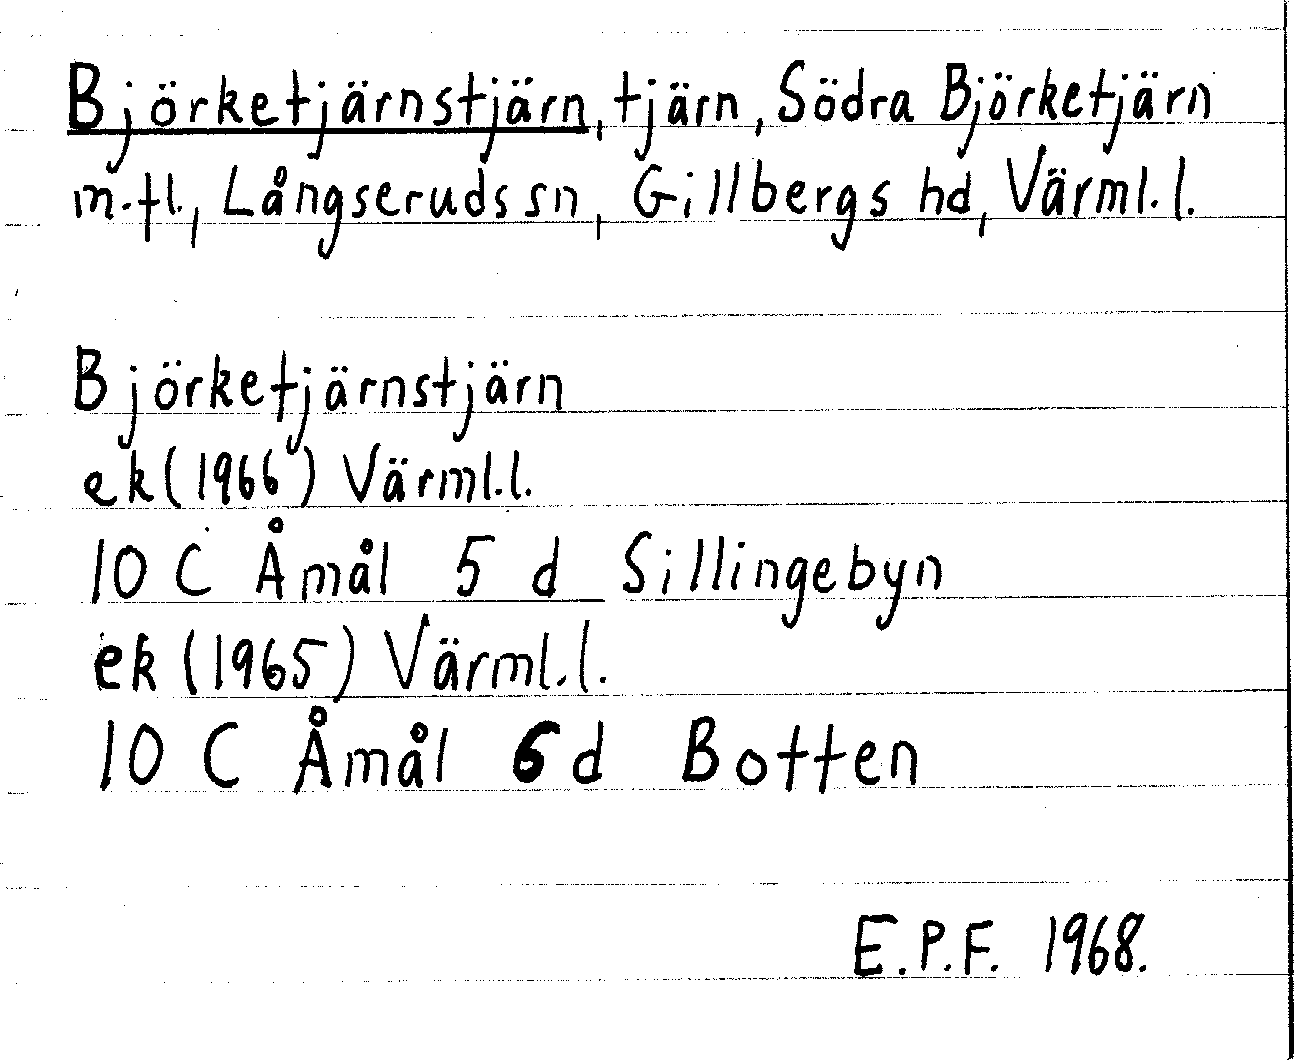 Björketjärnstjärn, tjärn, Södra Björketjärn
m.fl., Långseruds sn, Gillbergs hd, Värml.l.
Björketjärnstjärn
ek (1966) Värml.l.
10 C Åmål 5 d Sillingebyn
ek (1965) Värml.l.
10 C Åmål 6 d Botten
E.P.F. 1968.